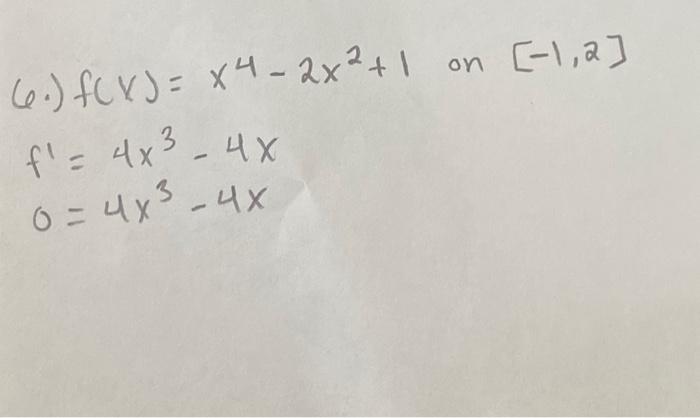 6.) f(x) = x⁴ - 2x² + 1 on [-1,2]
f' = 4x³ - 4x
0 = 4x³ - 4x